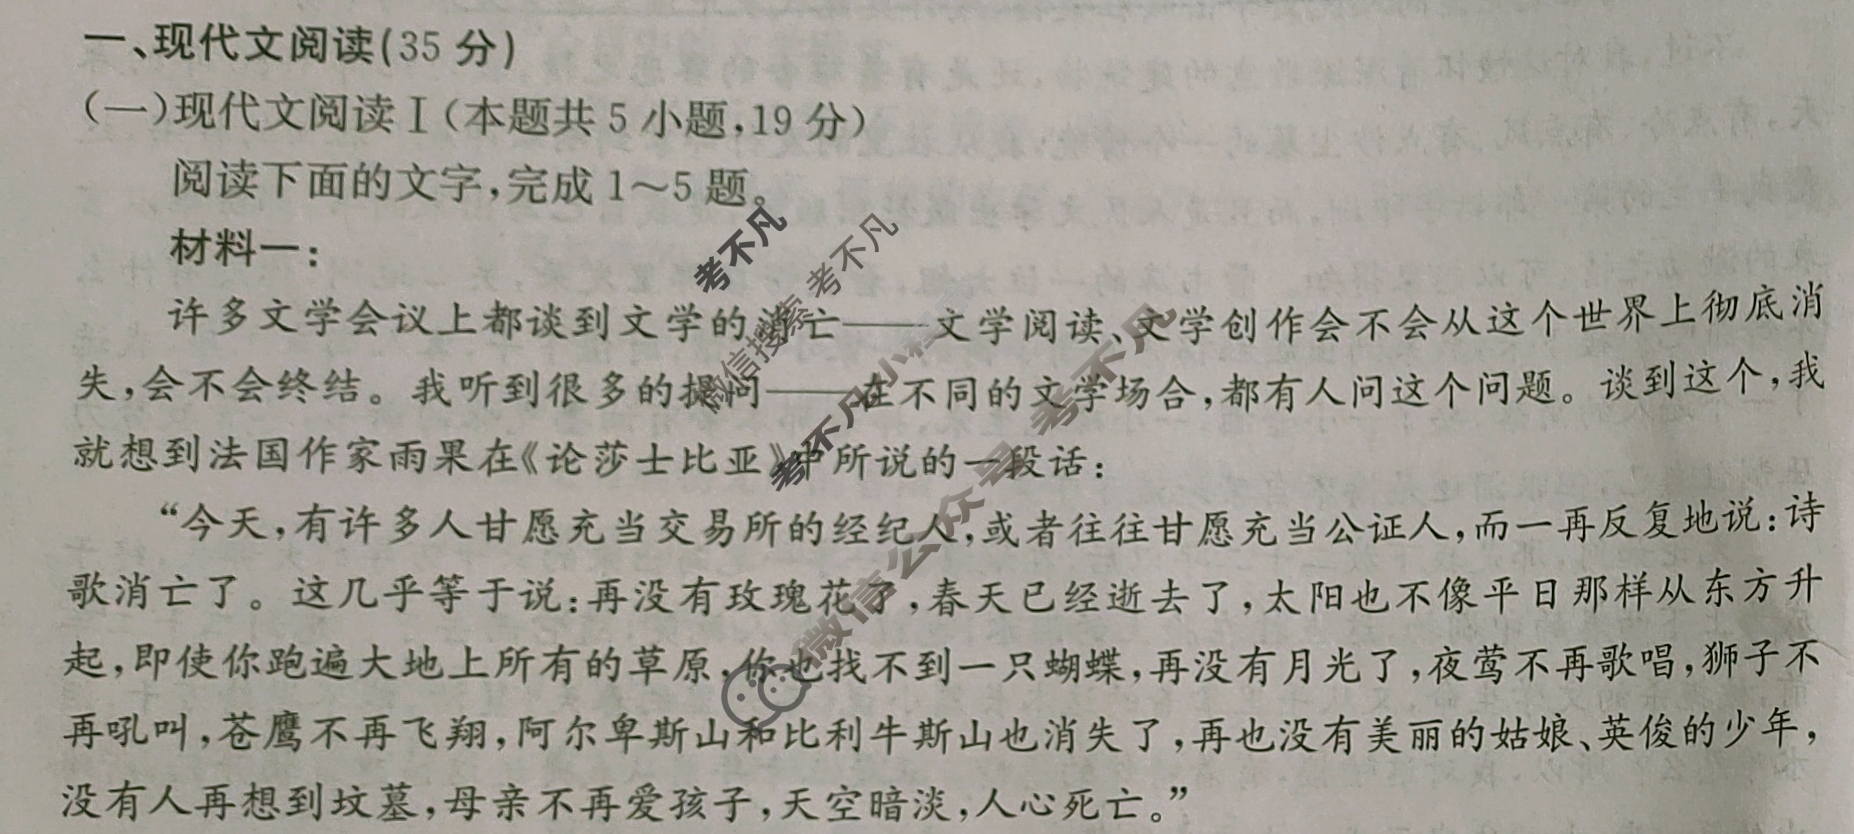 一、现代文阅读(35分)
(一)现代文阅读Ⅰ(本题共5小题,19分)
阅读下面的文字,完成1～5题。
材料一:
许多文学会议上都谈到文学的消亡——文学阅读、文学创作会不会从这个世界上彻底消
失,会不会终结。我听到很多的提问——在不同的文学场合,都有人问这个问题。谈到这个,我
就想到法国作家雨果在《论莎士比亚》中所说的一段话:
“今天,有许多人甘愿充当交易所的经纪人,或者往往甘愿充当公证人,而一再反复地说:诗
歌消亡了。这几乎等于说:再没有玫瑰花了,春天已经逝去了,太阳也不像平日那样从东方升
起,即使你跑遍大地上所有的草原,你也找不到一只蝴蝶,再没有月光了,夜莺不再歌唱,狮子不
再吼叫,苍鹰不再飞翔,阿尔卑斯山和比利牛斯山也消失了,再也没有美丽的姑娘、英俊的少年,
没有人再想到坟墓,母亲不再爱孩子,天空暗淡,人心死亡。”
考不凡
微信搜索 考不凡
考不凡
微信公众号 考不凡